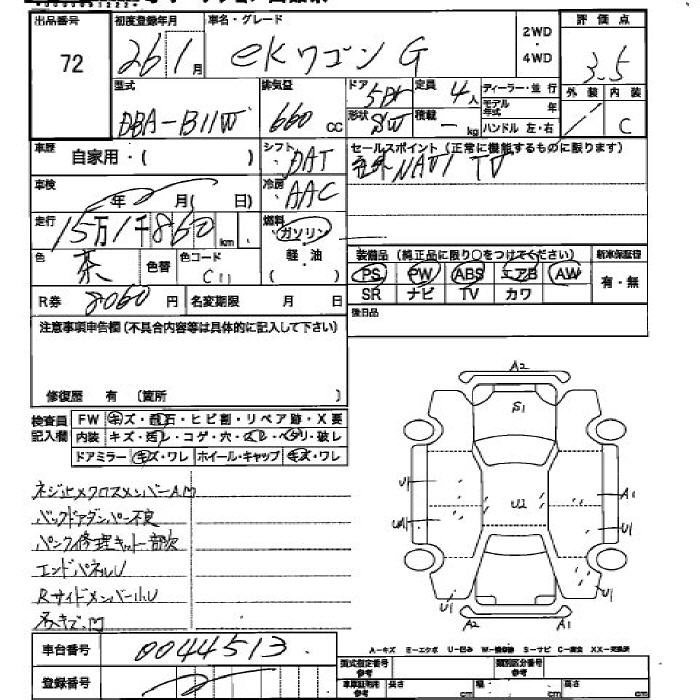 出品番号 初度登録年月 車名・グレード 2WD・4WD 評価点
72 26 1月 eKワゴン G 3.5
型式 排気量 ドア 5DR 定員 4人 ディーラー・並行 外装 内装
DBA-B11W 660cc 形状 SW 積載 ー kg モデル年式 年 ハンドル 左・右 C
車歴 自家用・( ) シフト DAT セールスポイント(正常に機能するものに限ります)
車検 年 月( 日) 冷房 AAC NAVI TV
走行 15万1千860km 燃料 ガソリン
色 茶 色替 色コード C11 軽・油 ( )
装備品(純正品に限り○をつけてください) 新車保証書
PS PW ABS エアB AW 有・無
SR ナビ TV カワ
R券 8060円 名変期限 月 日
後日品
注意事項申告欄(不具合内容等は具体的に記入して下さい)
修復歴 有 (箇所 )
検査員記入欄 FW キズ・飛石・ヒビ割・リペア跡・X要
内装 キズ・汚レ・コゲ・穴・スレ・ヘタリ・破レ
ドアミラー キズ・ワレ ホイール・キャップ キズ・ワレ
A2
S1
U1 U2 A1
UA1 U1
U1 U1
A2 A2
ネジ止メクロスメンバーAM
バックドアダンパー不良
パンク修理キット一部欠
エンドパネルU
Rサイドメンバー小U
車台番号 0044513
登録番号
A-キズ E-エクボ U-凹み W-補修跡 S-サビ C-腐食 XX-交換済
型式指定番号 参考 類別区分番号 参考
車庫証明用 参考 長さ cm 幅 cm 高さ cm